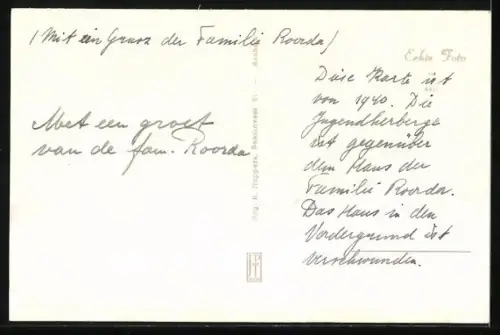 (Mit ein Gruss der Familie Roorda)
Met een groet
van de fam. Roorda
Echte Foto
Diese Karte ist
von 1940. Die
Jugendherberge
ist gegenüber
dem Haus der
Familie Roorda.
Das Haus in den
Vordergrund ist
verschwunden.
JPT